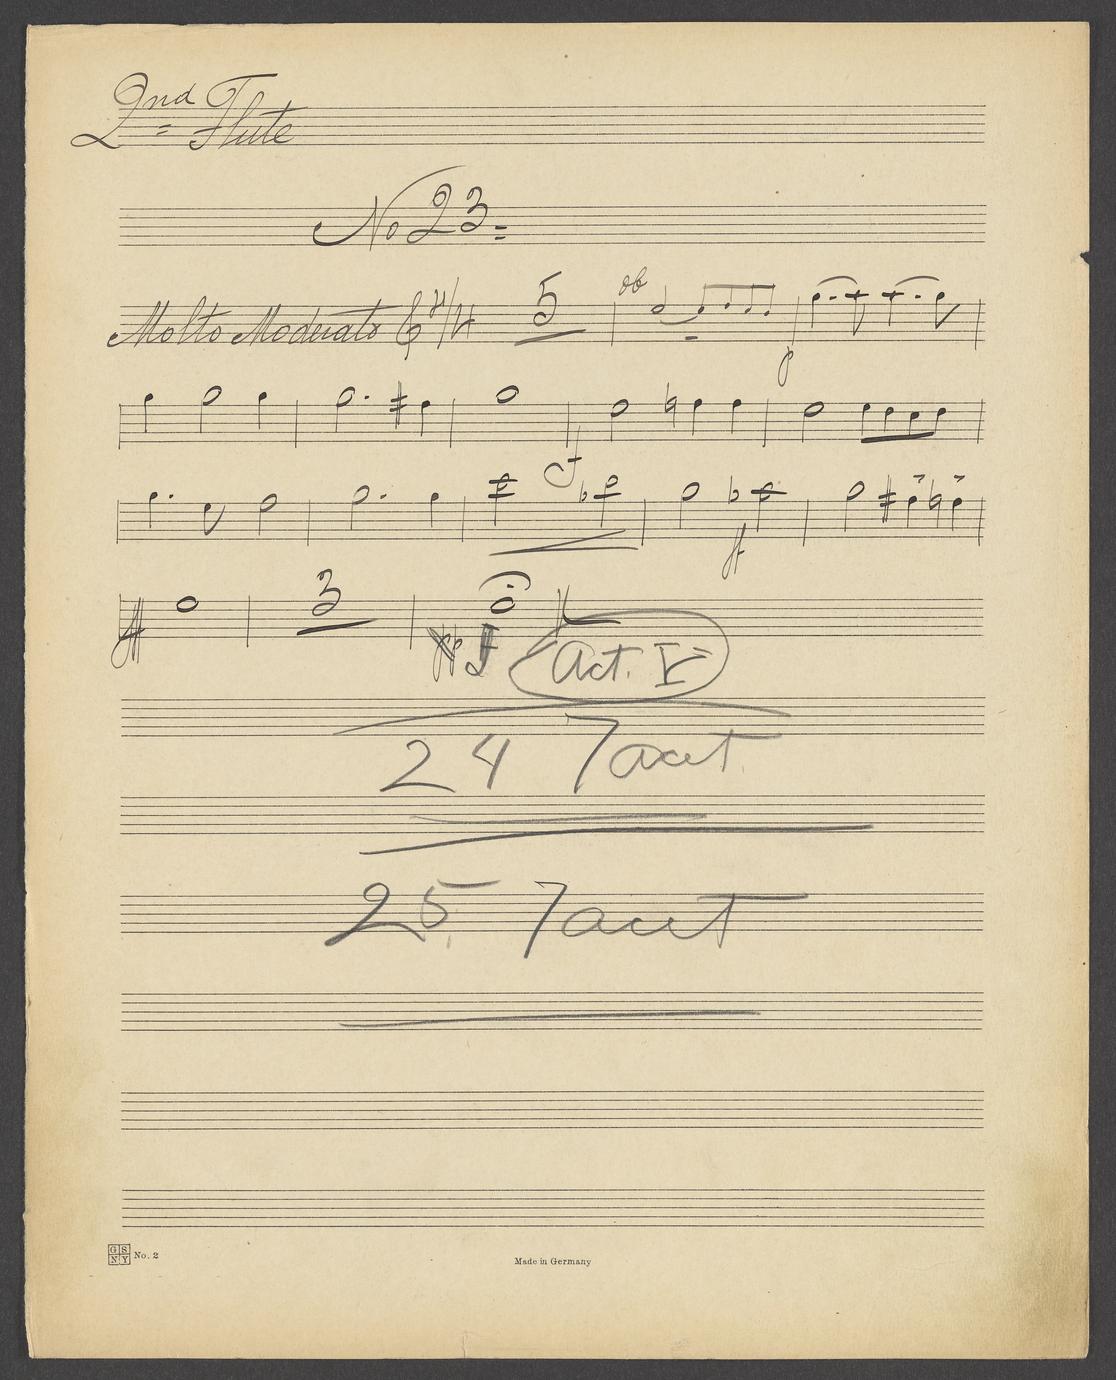 2nd Flute
No 23
Molto Moderato 4/4 5 ob
p
f
f
ff 3
Act. V
24 Tacet
25. Tacet
GS NY No. 2
Made in Germany